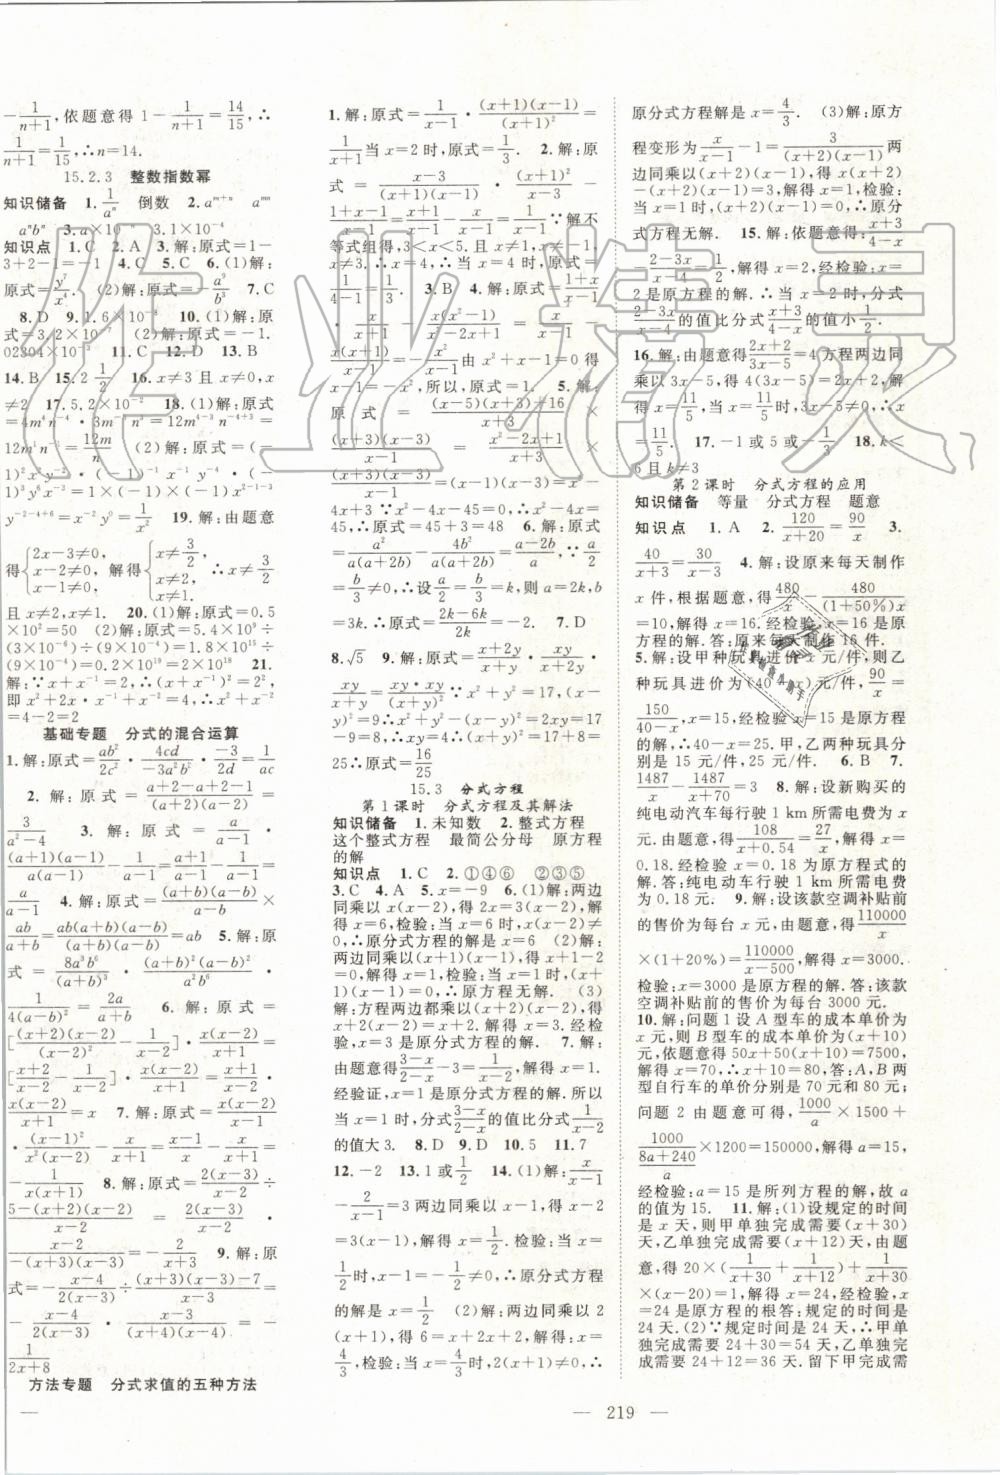 -1/(n+1),依题意得1-1/(n+1)=14/15,∴
1/(n+1)=1/15,∴n=14.
15.2.3 整数指数幂
知识储备 1.1/aⁿ 倒数 2.aᵐ⁺ⁿ aᵐⁿ
aⁿbⁿ 3.a×10⁻ⁿ 3.1×10⁻⁴
知识点 1.C 2.A 3.解:原式=1-
3+2-1=-1 4.C 5.C 6.(1)解:
8.D 9.1.6×10⁻⁸ 10.(1)解:原
式=3.2×10⁻⁷ (2)解:原式=-1.
02304×10⁻³ 11.C 12.D 13.B
14.B 15.2 1/2 16.x≠3且x≠
≠2 17.5.2×10⁻² 18.(1)解:原式
y⁻²⁻⁴⁺⁶=1/x² 19.解:由题意
得{2x-3≠0, x-2≠0, x-1≠0, 解得{x≠3/2 x≠2 x≠1. ∴x≠3/2
且x≠2,x≠1. 20.(1)解:原式=0.5
×10²=50 (2)解:原式=5.4×10⁹÷
(3×10⁻⁶)÷(9×10⁻⁴)=1.8×10¹⁵
÷(9×10⁻⁴)=0.2×10¹⁹=2×10¹⁸ 21.
解:∵x+x⁻¹=2,∴(x+x⁻¹)²=2²,
即x²+x⁻²+2=4,∴x²+x⁻²
=4-2=2
基础专题 分式的混合运算
1.解:原式=ab²/2c²·4cd/-3a²b²·-3/2d=1/ac
2.解:原式=(a+2-a+2-1)/((a+2)(a-2))=
3/(a²-4) 3.解:原式=a/(a-1)·
(a+1)(a-1)/a(a-1)-1/(a-1)=(a+1)/(a-1)-1/(a-1)=
a/(a-1) 4.解:原式=(a+b)(a-b)/(a-b)×
ab/(a+b)=ab(a+b)(a-b)/(a+b)(a-b)=ab 5.解:原
式=8a³b⁶/(a+b)³·(a+b)²(a-b)²/a²b⁶·
1/4(a-b)²=2a/(a+b) 6.解:原式=
[(x+2)(x-2)/(x-2)²-x/(x-2)]÷2/x(x-2)=
[(x+2)/(x-2)-x/(x-2)]·x(x-2)/2=2/(x-2)·
x(x-2)/2=x 7.解:原式=x(x-2)/(x-1)
·(x-1)²/x²(x-2)-1/(x+1)=(x-1)/x-1/(x+1)=
8.解:原式=2(x-3)/(x-2)÷
(5-(x+2)(x-2))/(x-2)=2(x-3)/(x-2)·
(x-2)/-(x+3)(x-3)=-2/(x+3) 9.解:原
式=-(x-4)/2(x-3)÷((x+3)(x-3)-7)/(x-3)=
-(x-4)/2(x-3)·(x-3)/(x+4)(x-4)=-
1/(2x+8)
方法专题 分式求值的五种方法
1.解:原式=1/(x-1)·(x+1)(x-1)/(x+1)²=
1/(x+1)当x=2时,原式=1/3. 2.解:原
式=(x-3)/(x+1)(x-1)·(x+1)²/(x-3)+
(1+x-1)/(x-1)=(x+1)/(x-1)+x/(x-1)∵解不
等式组得,3<x<5.且x≠1,x≠-1,
x≠3.∴x=4 当x=4时,原式=
3.B 4.解:原式=
由x²+x=0得
5.解:
原式=((x-5)(x+3)+16)/(x+3)×
(x+3)(x-3)/(x-1)=(x-1)²/(x+3)×
(x+3)(x-3)/(x-1)=(x-1)(x-3)=x²-
4x+3∵x²-4x-45=0,∴x²-4x=
45,∴原式=45+3=48 6.解:原式
=a²/a(a+2b)-4b²/a(a+2b)=(a-2b)/a,∵
b/3≠0,∴设a/2=b/3=k,则a=2k,b=
3k.∴原式=(2k-6k)/2k=-2. 7.D
8.√5 9.解:原式=(x+2y)/(x+y)·
xy/(x+2y)=xy/(x+y)
x²+y²=17,(x-
y)²=9∴x²+y²-2xy=9∴2xy=
17-9=8,∴(x+y)²=x²+y²+2xy=
25∴原式=16/25
15.3 分式方程
第1课时 分式方程及其解法
知识储备 1.未知数 2.整式方程
这个整式方程 最简公分母 原方程
的解
知识点 1.C 2.①④⑥ ②③⑤
3.C 4.A 5.x=-9 6.(1)解:两边
同乘以x(x-2),得2x=3(x-2),解得
x=6,检验:当x=6时,x(x-2)≠
0,∴原分式方程的解是x=6 (2)解:
两边同乘以(x+1)(x-1),得x+1-2
=0,解得x=1,检验:当x=1时,(x+
1)(x-1)=0,∴原方程无解. (3)
解:方程两边都乘以(x+2)(x-2),得
x+2(x-2)=x+2.解得x=3.经检
验,x=3是原分式方程的解. 7.解:
由题意得(3-x)/(2-x)-1/(x-2)=3解得x=1.
经验证,x=1是原分式方程的解.所以
当x=1时,分式(3-x)/(2-x)的值比分式1/(x-2)
的值大3. 8.D 9.D 10.5 11.7
12.-2 13.1或1/2 14.(1)解:x/(x-1)
-2/(x-1)=3两边同乘以x-1,得x-2
=3(x-1),解得x=1/2.检验:当x=
1/2时,x-1=-1/2≠0,∴原分式方程
的解是x=1/2 (2)解:两边同乘以2
(x+3),得4+3(x+3)=7,解得x=
-4/3.检验:当x=-4/3时,2(x+3)≠0,∴
原分式方程解是x=-4/3. (3)解:原方
程变形为x/(x-1)-1=3/(x-1)(x+2)两
边同乘以(x-1)(x+2),得x(x+2)
-(x-1)(x+2)=3,解得x=1,检验:
当x=1时,(x-1)(x+2)=0,∴原分
式方程无解. 15.解:依题意得:(x+3)/(4-x)
-(2-3x)/(x-4)=1/2,解得x=2,经检验:x=
2是原方程的解,∴当x=2时,分式
(2-3x)/(x-4)的值比分式(x+3)/(4-x)的值小1/2.
16.解:由题意得(2x+2)/(3x-5)=4方程两边同
乘以3x-5,得4(3x-5)=2x+2,解
得x=11/5,当x=11/5时,3x-5≠0,∴x
=11/5. 17.-1或5或-1/3 18.k<
6且k≠3
第2课时 分式方程的应用
知识储备 等量 分式方程 题意
知识点 1.A 2.120/(x+20)=90/x 3.
40/(x+3)=30/(x-3) 4.解:设原来每天制作
x件,根据题意,得480/x-480/(1+50%)x
=10,解得x=16.经检验,x=16是原
方程的解.答:原来每天制作16件.
5.解:设甲种玩具进价x元/件,则乙
种玩具进价为(40-x)元/件,90/x=
150/(40-x),x=15,经检验x=15是原方程
的解,∴40-x=25.甲,乙两种玩具分
别是15元/件,25元/件. 6.B 7.
1487/x-1487/(x+70)=3 8.解:设新购买的
纯电动汽车每行驶1km所需电费为x
元.由题意得:108/(x+0.54)=27/x,解得x=
0.18.经检验x=0.18为原方程式的
解.答:纯电动车行驶1km所需电费
为0.18元. 9.解:设该款空调补贴前
的售价为每台x元,由题意,得110000/x
×(1+20%)=110000/(x-500),解得x=3000.
检验:x=3000是原方程的解.答:该款
空调补贴前的售价为每台3000元.
10.解:问题1设A型车的成本单价为
x元,则B型车的成本单价为(x+10)
元,依题意得50x+50(x+10)=7500,
解得x=70,∴x+10=80,答:A,B两
型自行车的单价分别是70元和80元;
问题2由题意可得,1000/a×1500+
1000/((8a+240)/a)×1200=150000,解得a=15,
经检验:a=15是所列方程的解,故a
的值为15. 11.解:(1)设规定的时间
是x天,则甲单独完成需要(x+30)
天,乙单独完成需要(x+12)天,由题
意,得20×(1/(x+30)+1/(x+12))+1/(x+12)
×(x-20)=1,解得x=24,经检验,x
=24是原方程的根答:规定的时间是
24天.(2)∵规定时间是24天,∴甲单
独完成需要24+30=54天,乙单独完
成需要24+12=36天.留下甲完成需
219